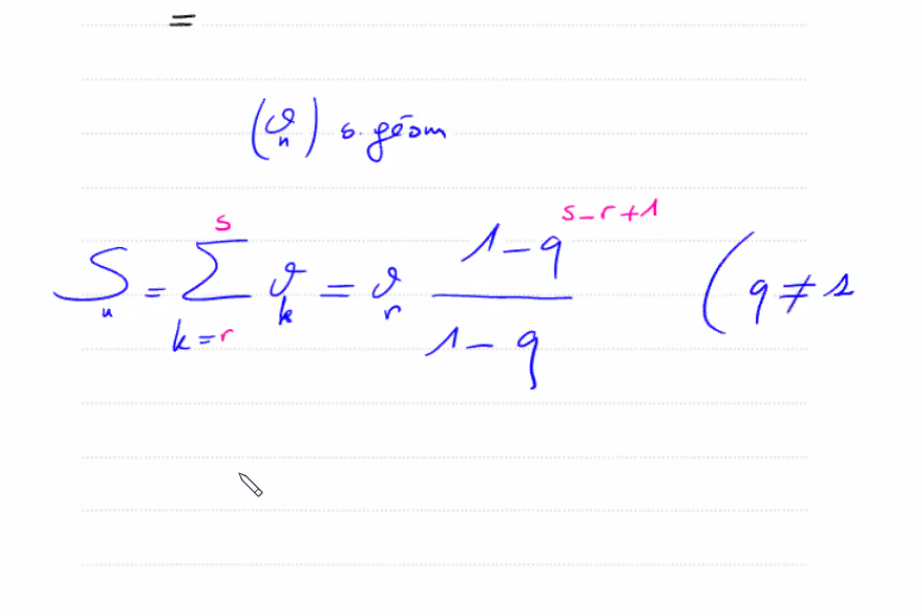 =
(v_n) s. géom
S_n = \sum_{k=r}^{s} v_k = v_r \frac{1-q^{s-r+1}}{1-q} (q ≠ 1